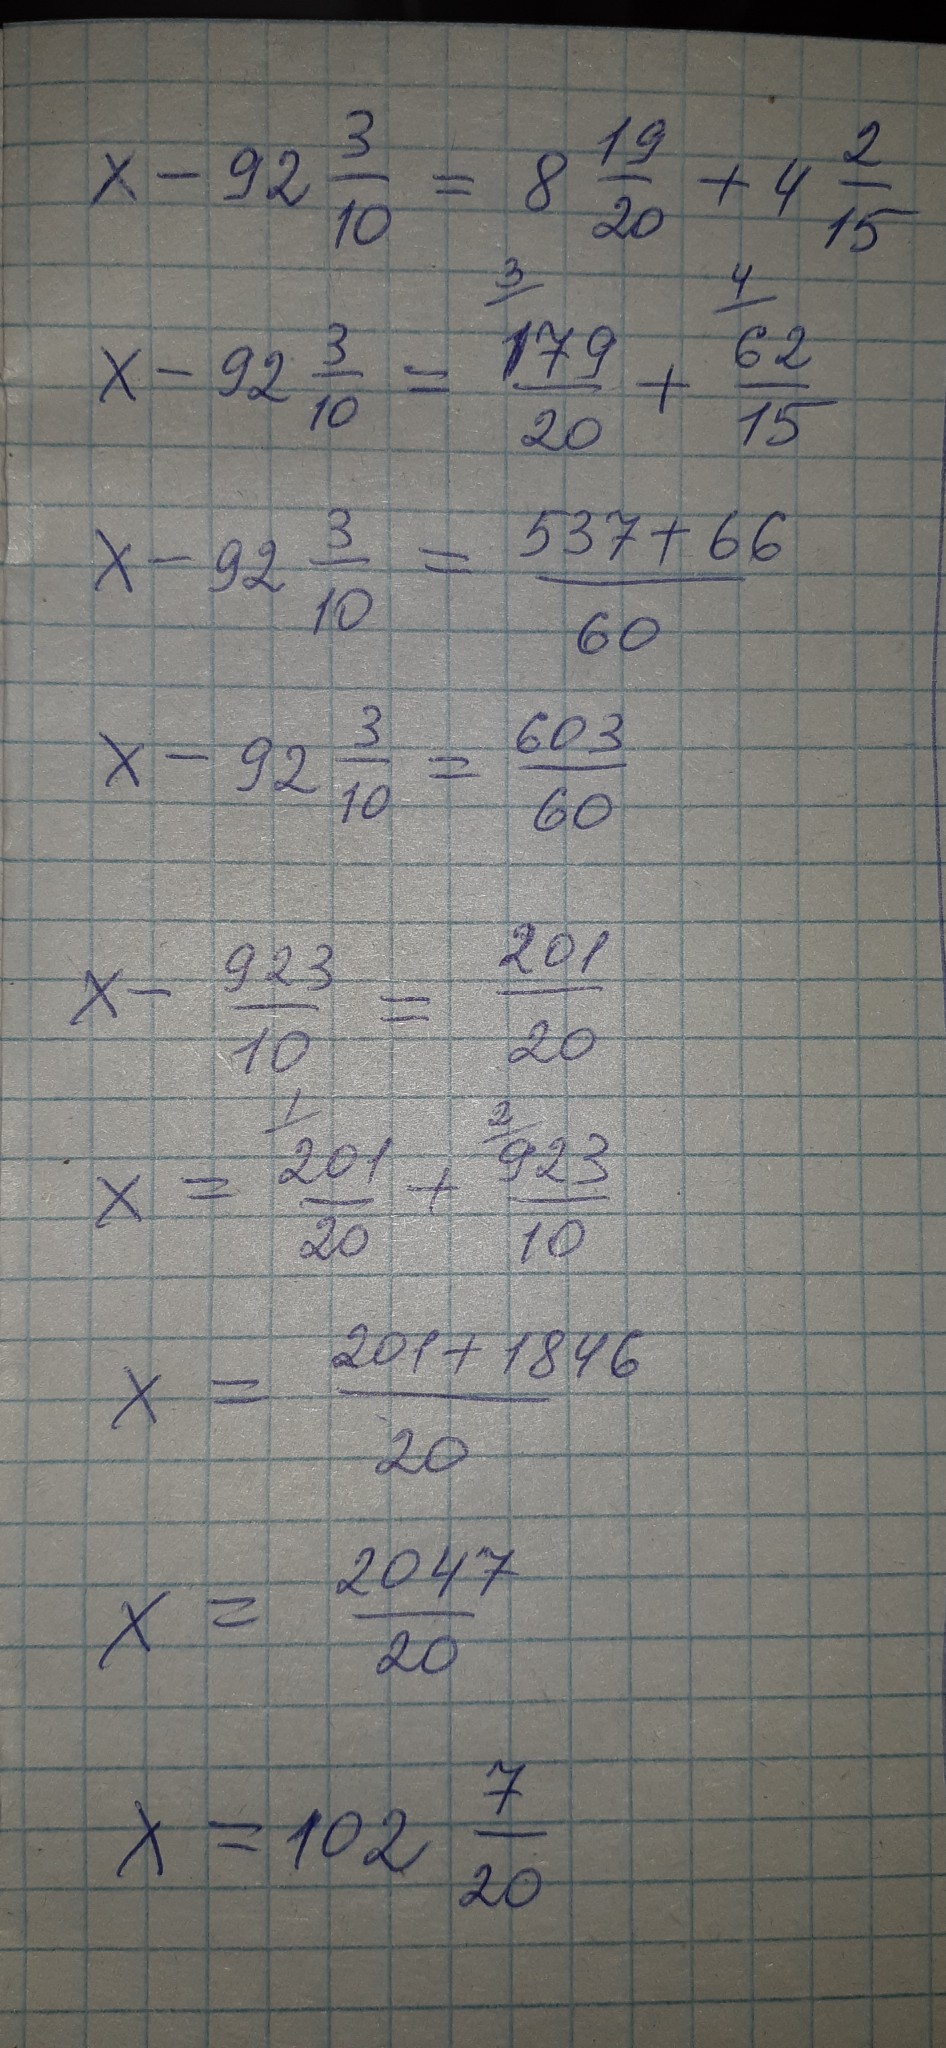 x - 92 3/10 = 8 19/20 + 4 2/15
x - 92 3/10 = 3/ 179/20 + 4/ 62/15
x - 92 3/10 = (537 + 66)/60
x - 92 3/10 = 603/60
x - 923/10 = 201/20
x = 1/ 201/20 + 2/ 923/10
x = (201 + 1846)/20
x = 2047/20
x = 102 7/20